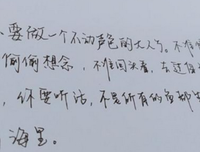 要做一个不动声色的大人了。不准情
偷偷想念,不准回头看。去过自
,你要听话,不是所有的鱼都生
海里。